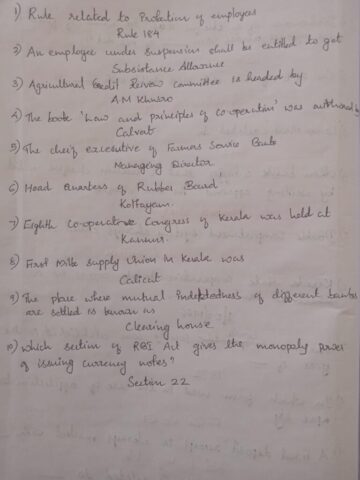 1) Rule related to Probation of employees
Rule 184
2) An employee under suspension shall be entitled to get
Subsistance Allowance
3) Agricultural Credit Review committee is headed by
A M Khusro
4) The book 'Law and principles of co-operation' was authored by
Calvert
5) The cheif excecutive of Farmers Service Bank
Managing Director
6) Head Quarters of Rubber Board
Kottayam.
7) Eighth co-operative Congress of Kerala was held at
Kannur.
8) First Milk Supply Union in Kerala was
Calicut
9) The place where mutual indebtedness of different banks
are settled is known as
Clearing house
10) which section of RBI Act gives the monopoly power
of issuing currency notes?
Section 22